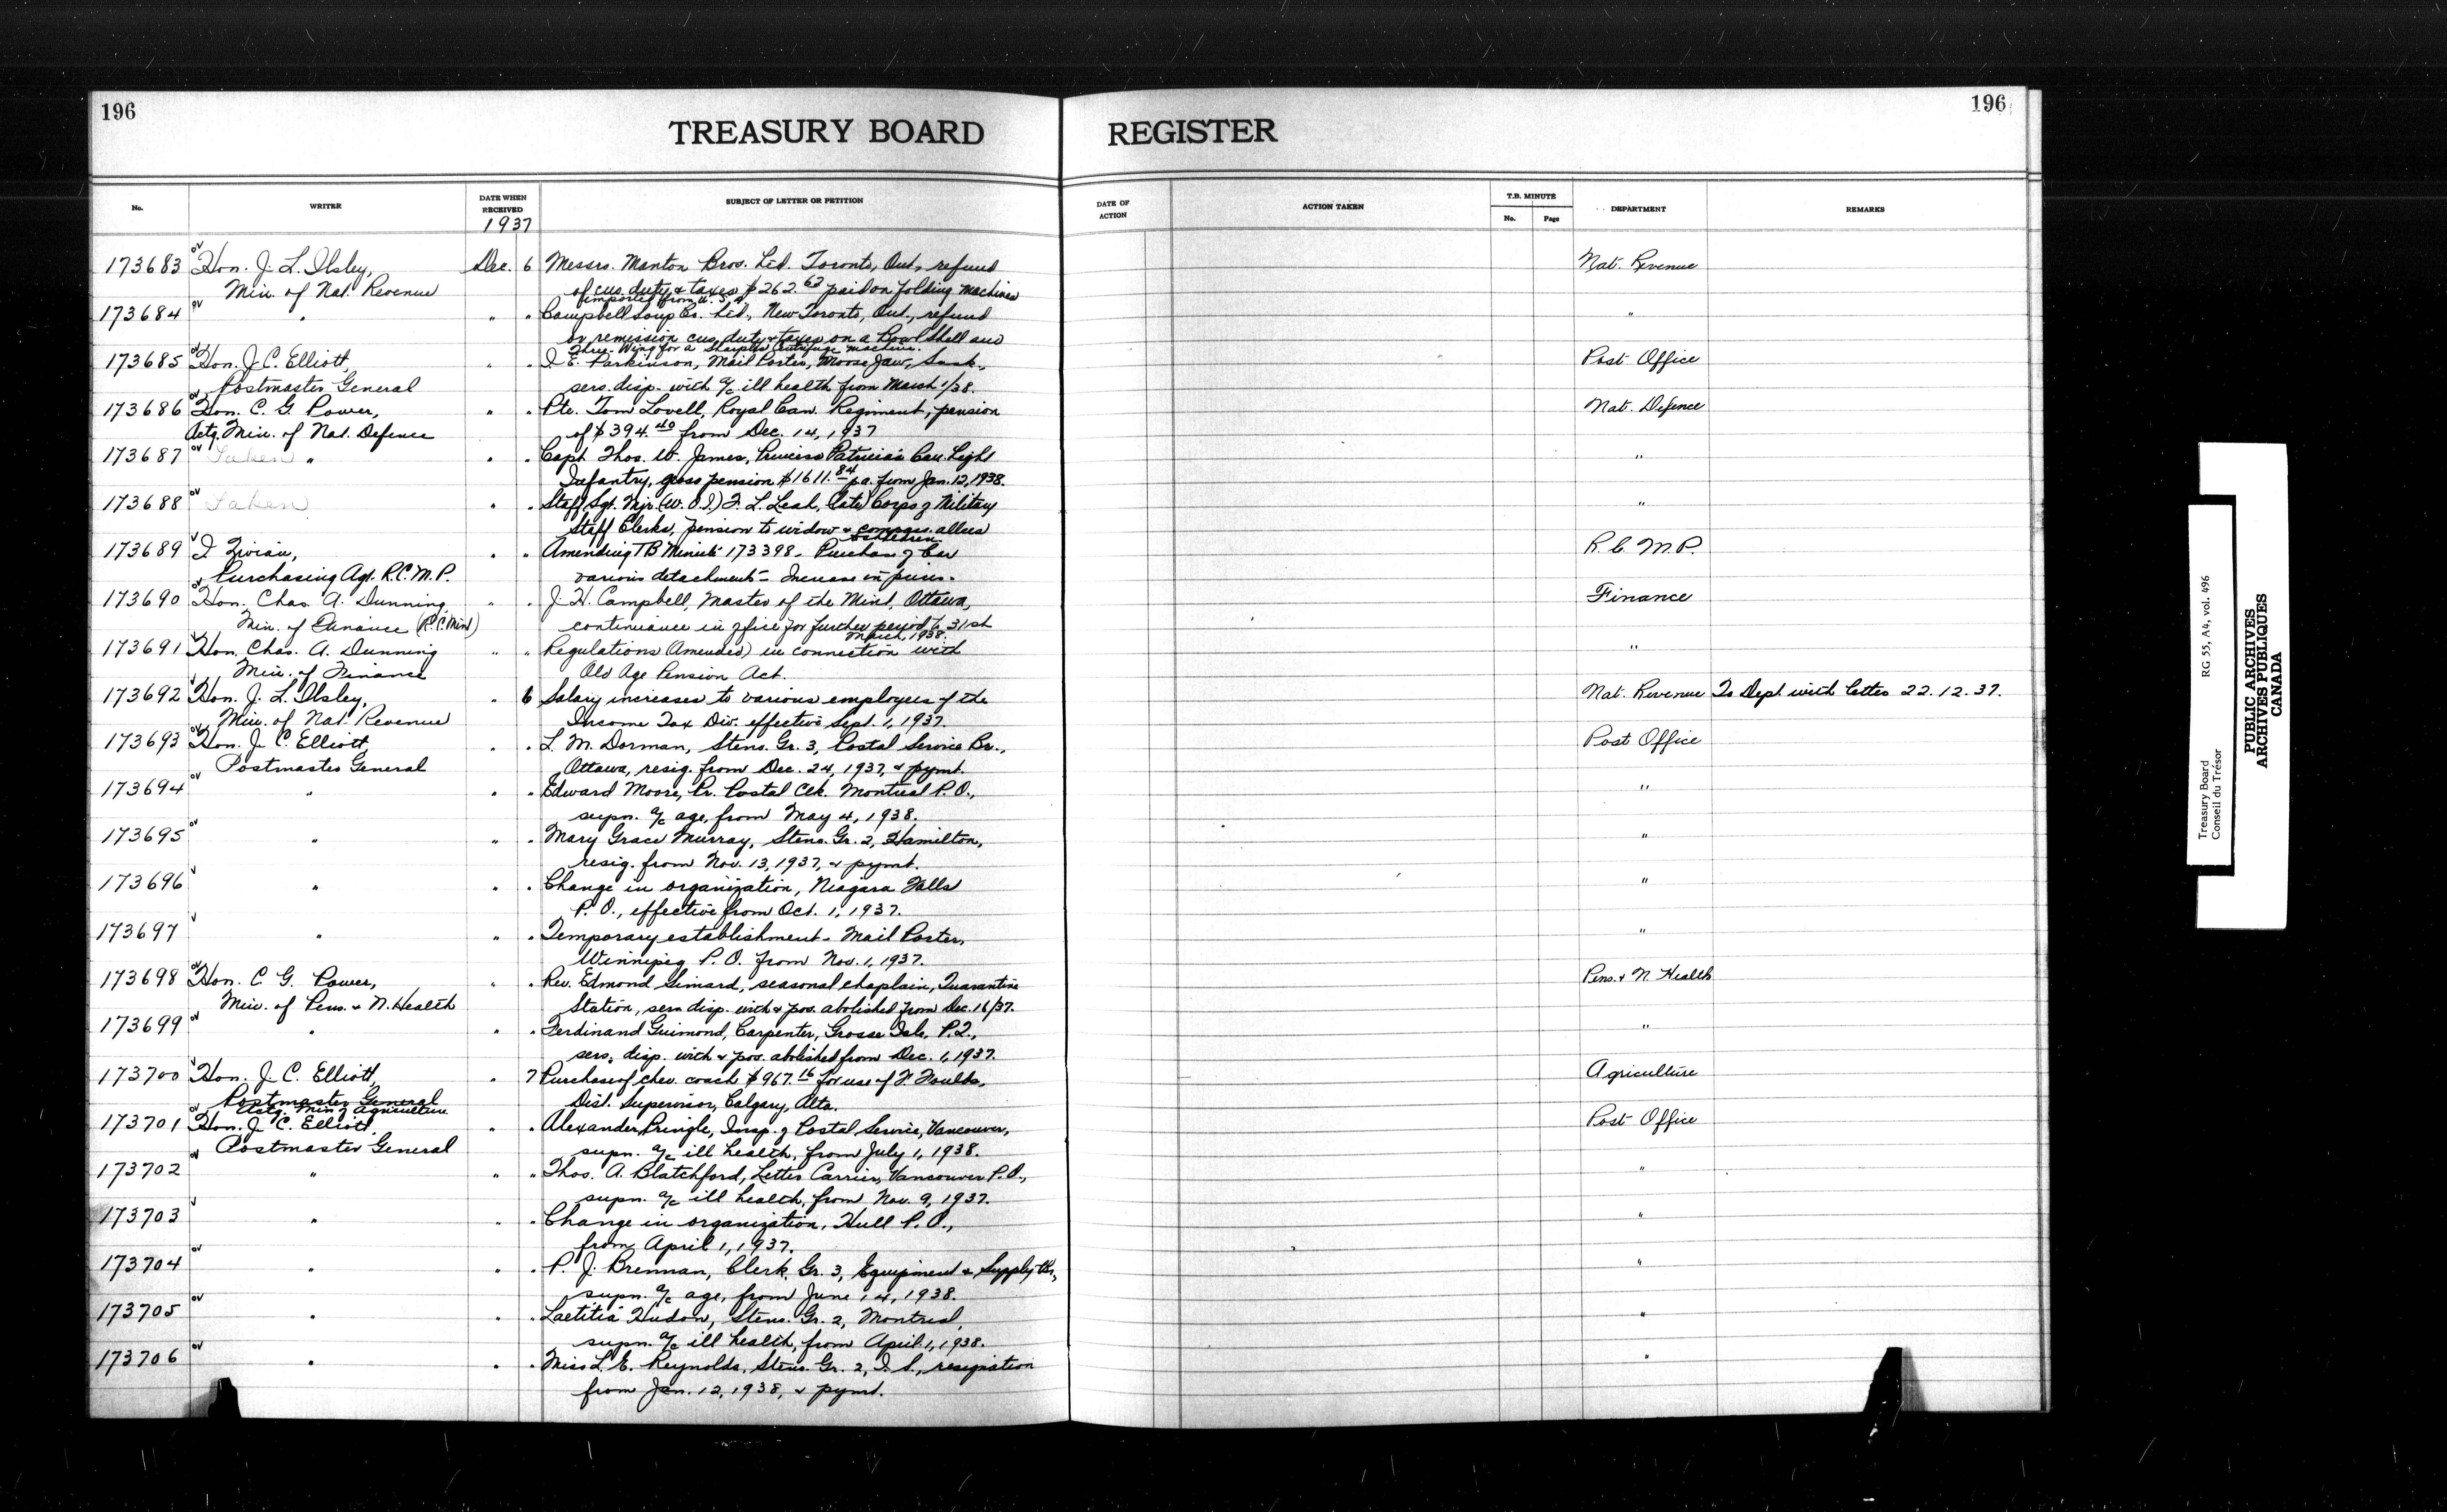 196
196
TREASURY BOARD REGISTER
No. WRITER DATE WHEN RECEIVED SUBJECT OF LETTER OR PETITION DATE OF ACTION ACTION TAKEN T.B. MINUTE No. Page DEPARTMENT REMARKS
1937
173683 Hon. J. L. Ilsley, Dec. 6 Messrs. Manton Bros. Ltd. Toronto, Ont., refund Nat. Revenue
Min. of Nat. Revenue of cus. duty & taxes $262.63 paid on folding machines
imported from U.S.A.
173684 " " " Campbell Soup Co. Ltd., New Toronto, Ont., refund "
or remission cus. duty & taxes on a Bowl Shell and
Three-Wing for a Sharples Centrifuge machine.
173685 Hon. J. C. Elliott, " " I. E. Parkinson, Mail Porter, Moose Jaw, Sask., Post Office
Postmaster General sers. disp. with a/c ill health from March 1/38.
173686 Hon. C. G. Power, " " Pte. Tom Lovell, Royal Can. Regiment, pension Nat. Defence
Actg. Min. of Nat. Defence of $394.40 from Dec. 14, 1937
173687 Taken " " " Capt. Thos. W. James, Princess Patricia's Can. Light "
Infantry, gross pension $1611.84 p.a. from Jan. 12, 1938.
173688 Taken " " Staff Sgt. Mjr. (W.O.I.) F. L. Leah, (late) Corps of Military "
Staff Clerks, pension to widow & compass. allces
to children
173689 I. Zivian, " " Amending TB Minute 173398 - Purchase of Car R.C.M.P.
Purchasing Agt. R.C.M.P. various detachments - Increase in prices.
173690 Hon. Chas. A. Dunning, " " J. H. Campbell, Master of the Mint, Ottawa, Finance
Min. of Finance (R.C. Mint) continuance in office for further period to 31st
March, 1938.
173691 Hon. Chas. A. Dunning " " Regulations (Amended) in connection with "
Min. of Finance Old Age Pension Act.
173692 Hon. J. L. Ilsley, " 6 Salary increases to various employees of the Nat. Revenue To Dept. with letter 22.12.37.
Min. of Nat. Revenue Income Tax Div. effective Sept. 1, 1937.
173693 Hon. J. C. Elliott, " " L. M. Dorman, Steno. Gr. 3, Postal Service Br., Post Office
Postmaster General Ottawa, resig. from Dec. 24, 1937, & pymt.
173694 " " " Edward Moore, Pr. Postal Clk. Montreal P.O., "
supn. a/c age, from May 4, 1938.
173695 " " " Mary Grace Murray, Steno. Gr. 2, Hamilton, "
resig. from Nov. 13, 1937, & pymt.
173696 " " " Change in organization, Niagara Falls "
P.O., effective from Oct. 1, 1937.
173697 " " " Temporary establishment - Mail Porter, "
Winnipeg P.O. from Nov. 1, 1937.
173698 Hon. C. G. Power, " Rev. Edmond Simard, seasonal chaplain, Quarantine Pens. & N. Health
Min. of Pens. & N. Health Station, sers. disp. with & pos. abolished from Dec. 16/37.
173699 " " " Ferdinand Guimond, Carpenter, Grosse Isle, P.Q., "
sers. disp. with & pos. abolished from Dec. 1, 1937.
173700 Hon. J. C. Elliott, " 7 Purchase of Chev. coach $967.16 for use of F. Foulds, Agriculture
Postmaster General Dist. Supervisor, Calgary, Alta.
Actg. Min. of Agriculture
173701 Hon. J. C. Elliott, " " Alexander Pringle, Insp. of Postal Service, Vancouver, Post Office
Postmaster General supn. a/c ill health, from July 1, 1938.
173702 " " " Thos. A. Blatchford, Letter Carrier, Vancouver P.O., "
supn. a/c ill health, from Nov. 9, 1937.
173703 " " " Change in organization, Hull P.O., "
from April 1, 1937.
173704 " " " P. J. Brennan, Clerk, Gr. 3, Equipment & Supply Br., "
supn. a/c age, from June 14, 1938.
173705 " " " Laetitia Hudon, Steno. Gr. 2, Montreal, "
supn. a/c ill health, from April 1, 1938.
173706 " " " Miss L. E. Reynolds, Steno. Gr. 2, I. S., resignation "
from Jan. 12, 1938, & pymt.
Treasury Board RG 55, A4, vol. 496
Conseil du Trésor
PUBLIC ARCHIVES
ARCHIVES PUBLIQUES
CANADA